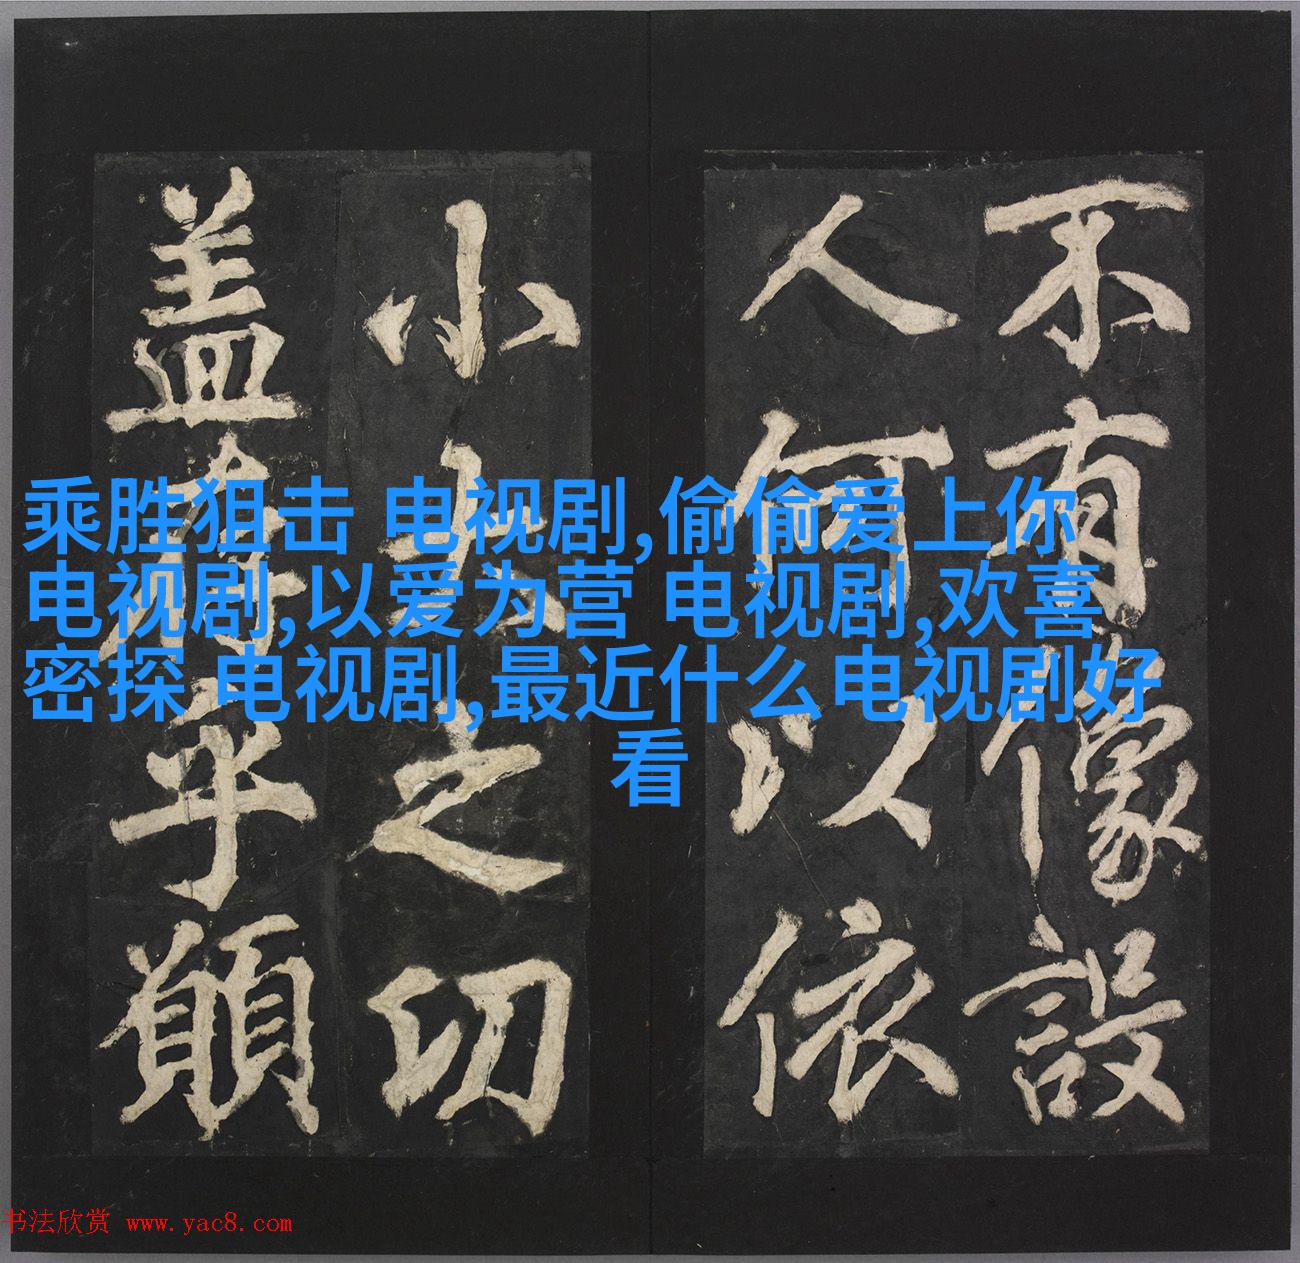 不有像設
人何以依
小大之切
盖乎
乘胜狙击 电视剧,偷偷爱上你
电视剧,以爱为营 电视剧,欢喜
密探 电视剧,最近什么电视剧好
看
书法欣赏 www.yac8.com